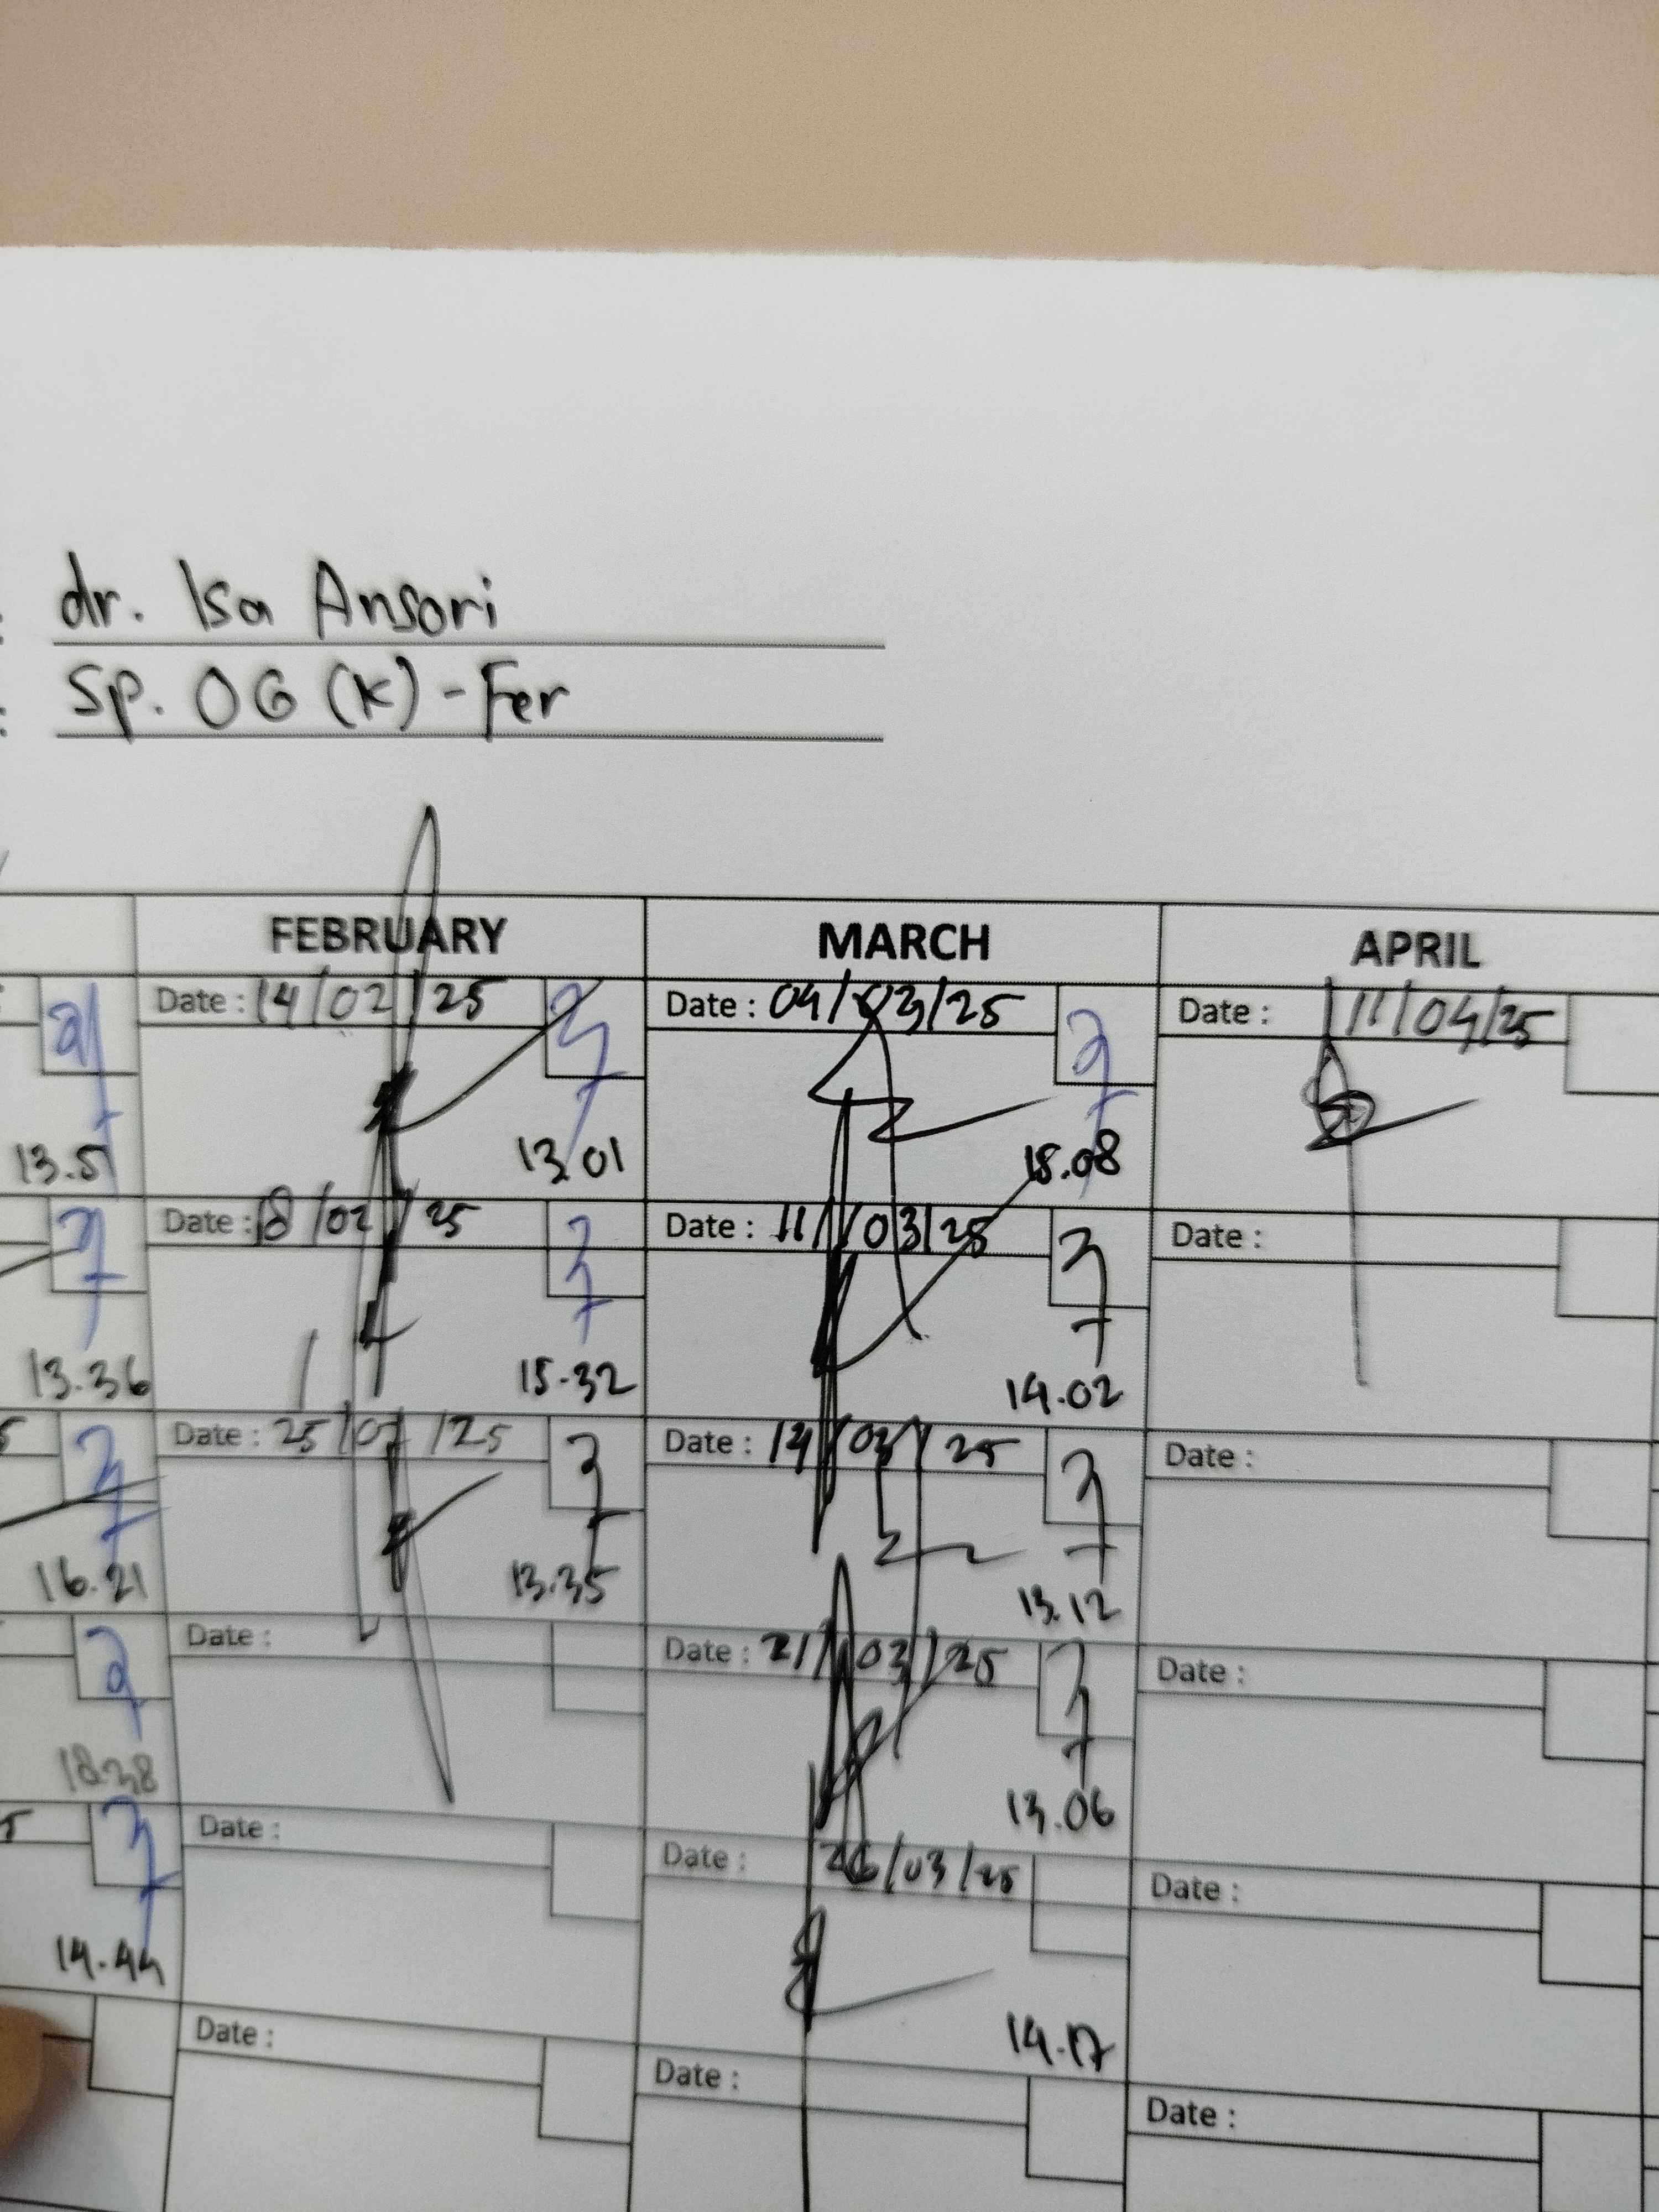 : dr. Isa Ansori
: Sp. OG (K) - Fer
FEBRUARY MARCH APRIL
Date : 14/02/25 Date : 04/03/25 Date : 11/04/25
13.51 13.01 15.08
Date : 18/02/25 Date : 11/03/25 Date :
13.36 15.32 14.02
Date : 25/02/25 Date : 14/03/25 Date :
16.21 13.35 13.12
Date : Date : 21/03/25 Date :
18.38 13.06
Date : Date : 26/03/25 Date :
14.44 14.17
Date : Date : Date :